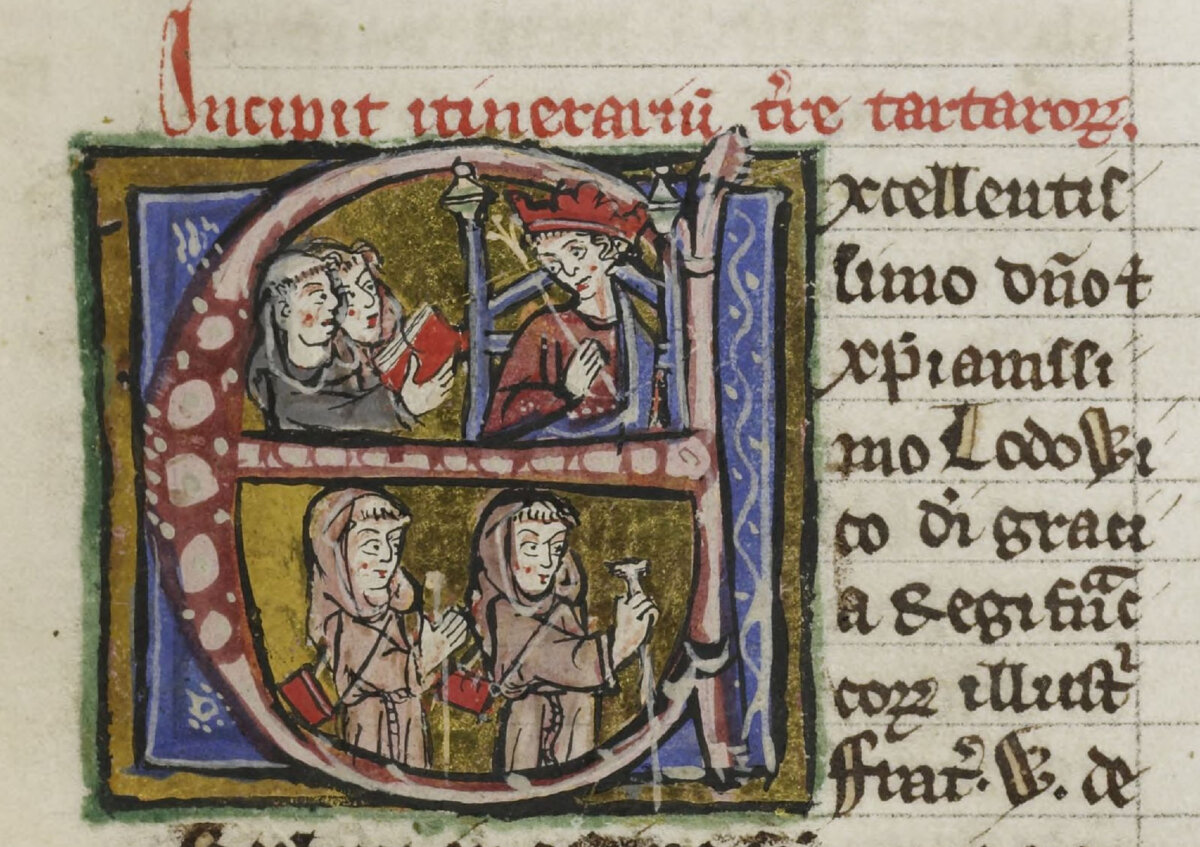 Incipit itinerariū t̄re tartaroꝝ.
Excellentis
simo dn̄o ⁊
xp̄ianissi
mo Lodowi
co di graci
a Regi frā
coꝝ illustr
ffratr̄. W. de